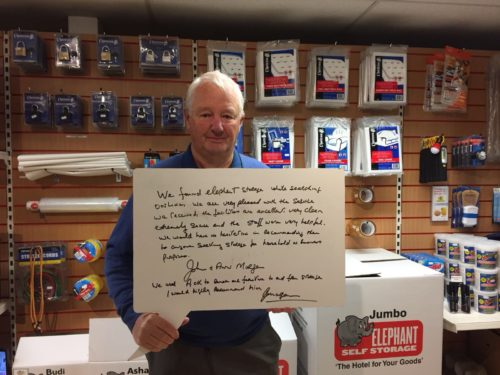 We found elephant storage while searching
Online. We are very pleased with the service
we received, the facilities are excellent, very clean
extremely secure and the staff were very helpful.
We would have no hesitation in recommending them
to anyone seeking storage for household or business
purposes.
John & Ann Morgan
We used to move our furniture to and from storage
I would highly recommend him
Jumbo
ELEPHANT
SELF STORAGE
'The Hotel for Your Goods'
Budi
Asha